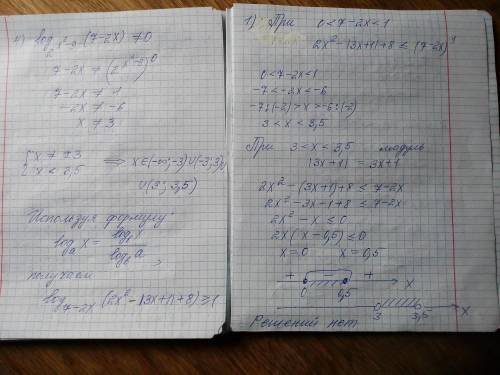 4) log_{2^{x²-9}} (7-2x) ≠ 0
7-2x ≠ (2^{x²-9})^0
7-2x ≠ 1
-2x ≠ -6
x ≠ 3
{ x ≠ ±3
{ x < 3,5 ⟹ x∈(-∞;-3)∪(-3;3)∪
∪(3;3,5)
Используя формулу:
log_a x = log_b x / log_b a ,
получаем
log_{7-2x} (2x²-|3x+1|+8) ≥ 1
1) При 0<7-2x<1
2x²-|3x+1|+8 ≤ (7-2x)^1
0<7-2x<1
-7<-2x<-6
-7:(-2)>x>-6:(-2)
3<x<3,5
При 3<x<3,5 модуль
|3x+1| = 3x+1
2x²-(3x+1)+8 ≤ 7-2x
2x²-3x-1+8 ≤ 7-2x
2x²-x ≤ 0
2x(x-0,5) ≤ 0
x=0 x=0,5
+ - + x
0 0,5
3 3,5 x
Решений нет